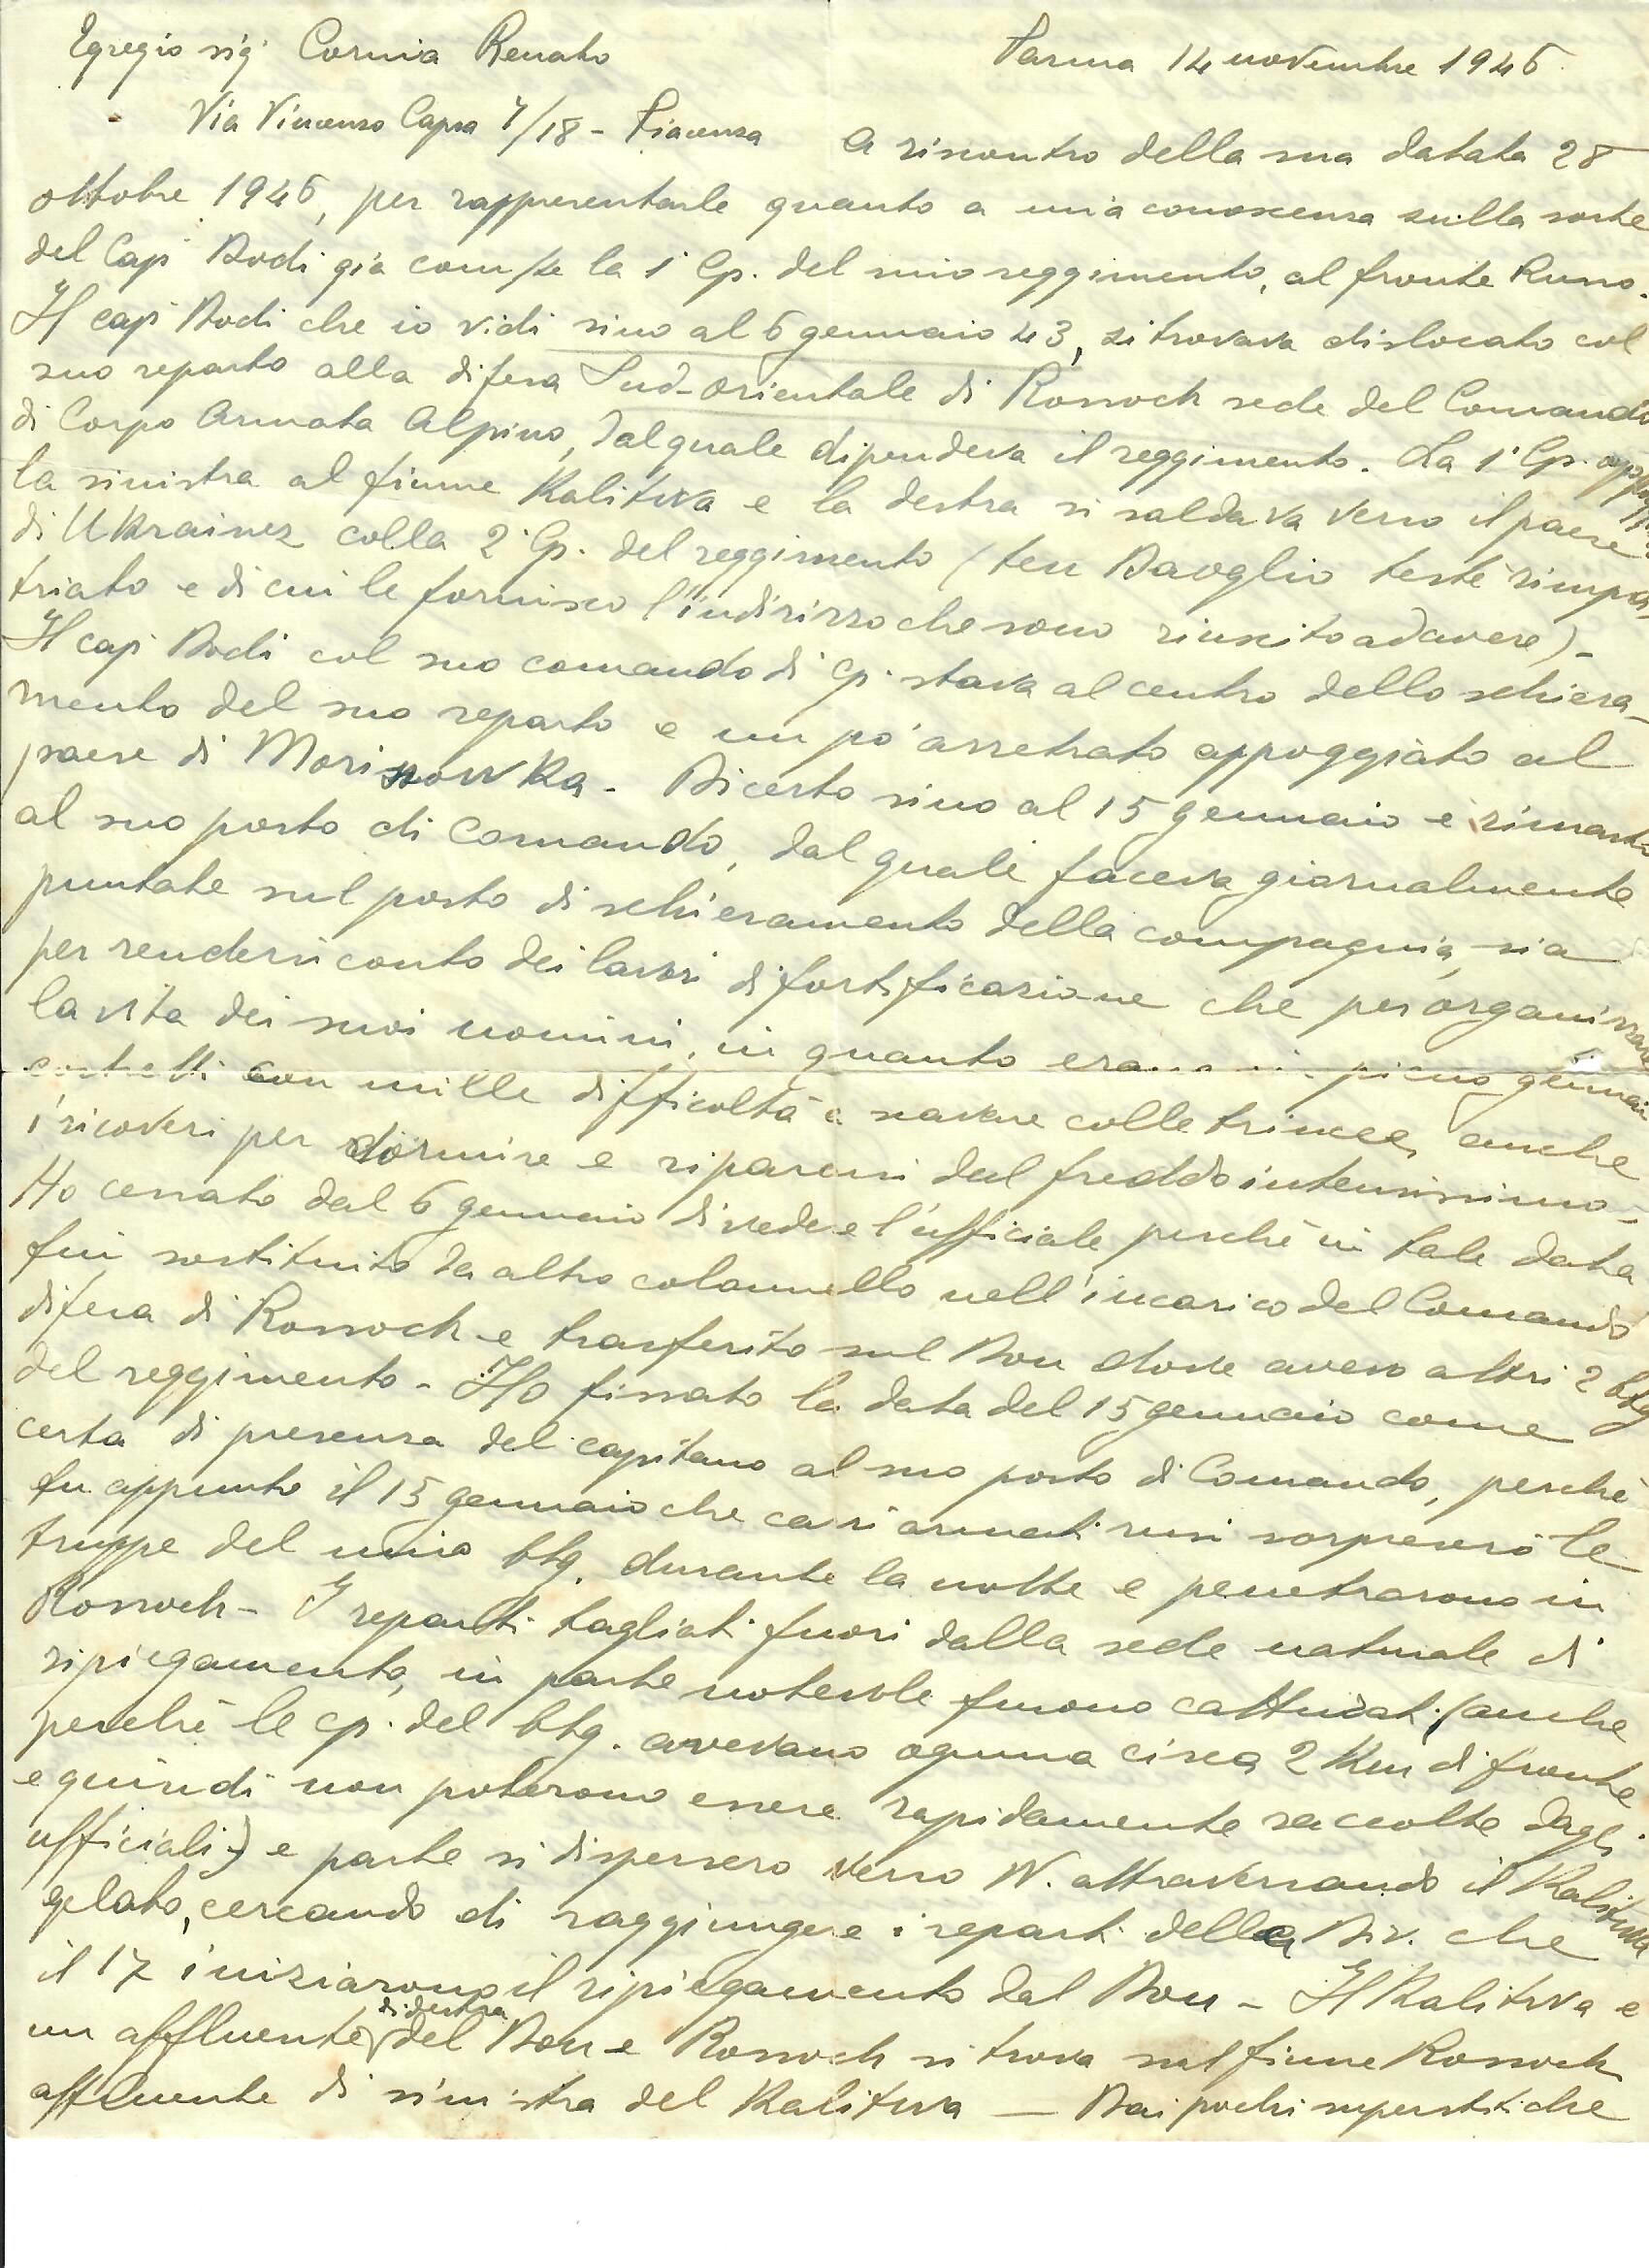 Egregio sig. Cornia Renato
Parma 14 novembre 1946
Via Vincenzo Capra 7/18 - Piacenza
A riscontro della sua datata 28
ottobre 1946, per rappresentarle quanto a mia conoscenza sulla sorte
del Cap. Bodi già com/te la 1ª Cp. del mio reggimento, al fronte Russo.
Il cap. Bodi che io vidi sino al 6 gennaio 43, si trovava dislocato col
suo reparto alla difesa Sud-orientale di Rossoch sede del Comando
di Corpo Armata Alpino, dal quale dipendeva il reggimento. La 1ª Cp.
la sinistra al fiume Kalitwa e la destra si saldava verso il paese
di Ukrainez colla 2ª Cp. del reggimento (ten Bavoglio testè rimpa-
triato e di cui le fornisco l'indirizzo che sono riuscito ad avere) -
Il cap. Bodi col suo comando di cp. stava al centro dello schiera-
mento del suo reparto e un po' arretrato appoggiato al
paese di Morisnowka - Di certo sino al 15 gennaio è rimasto
al suo posto di Comando, dal quale faceva giornalmente
puntate sul posto di schieramento della compagnia, sia
per rendersi conto dei lavori di fortificazione che per organizzare
la vita dei suoi uomini, in quanto erano in pieno gennaio
costretti con mille difficoltà a scavare colle trincee, anche
i ricoveri per dormire e ripararsi dal freddo intensissimo -
Ho cessato dal 6 gennaio di vedere l'ufficiale perchè in tale data
fui sostituito da altro colonnello nell'incarico del Comando
difesa di Rossoch e trasferito sul Don dove avevo altri 2 btg
del reggimento - Ho fissato la data del 15 gennaio come
certa di presenza del capitano al suo posto di Comando, perchè
fu appunto il 15 gennaio che carri armati russi sorpresero le
truppe del mio btg. durante la notte e penetrarono in
Rossoch - I reparti tagliati fuori dalla sede naturale di
ripiegamento, in parte notevole furono catturati (anche
perchè le cp. del btg. avevano ognuna circa 2 Km di fronte
e quindi non poterono essere rapidamente raccolte dagli
ufficiali) e parte si dispersero verso N. attraversando il Kalitwa
gelato, cercando di raggiungere i reparti della Div. che
il 17 iniziarono il ripiegamento dal Don - Il Kalitwa è
un affluente di destra del Don e Rossoch si trova sul fiume Rossoch
affluente di sinistra del Kalitwa — Dai pochi superstiti che